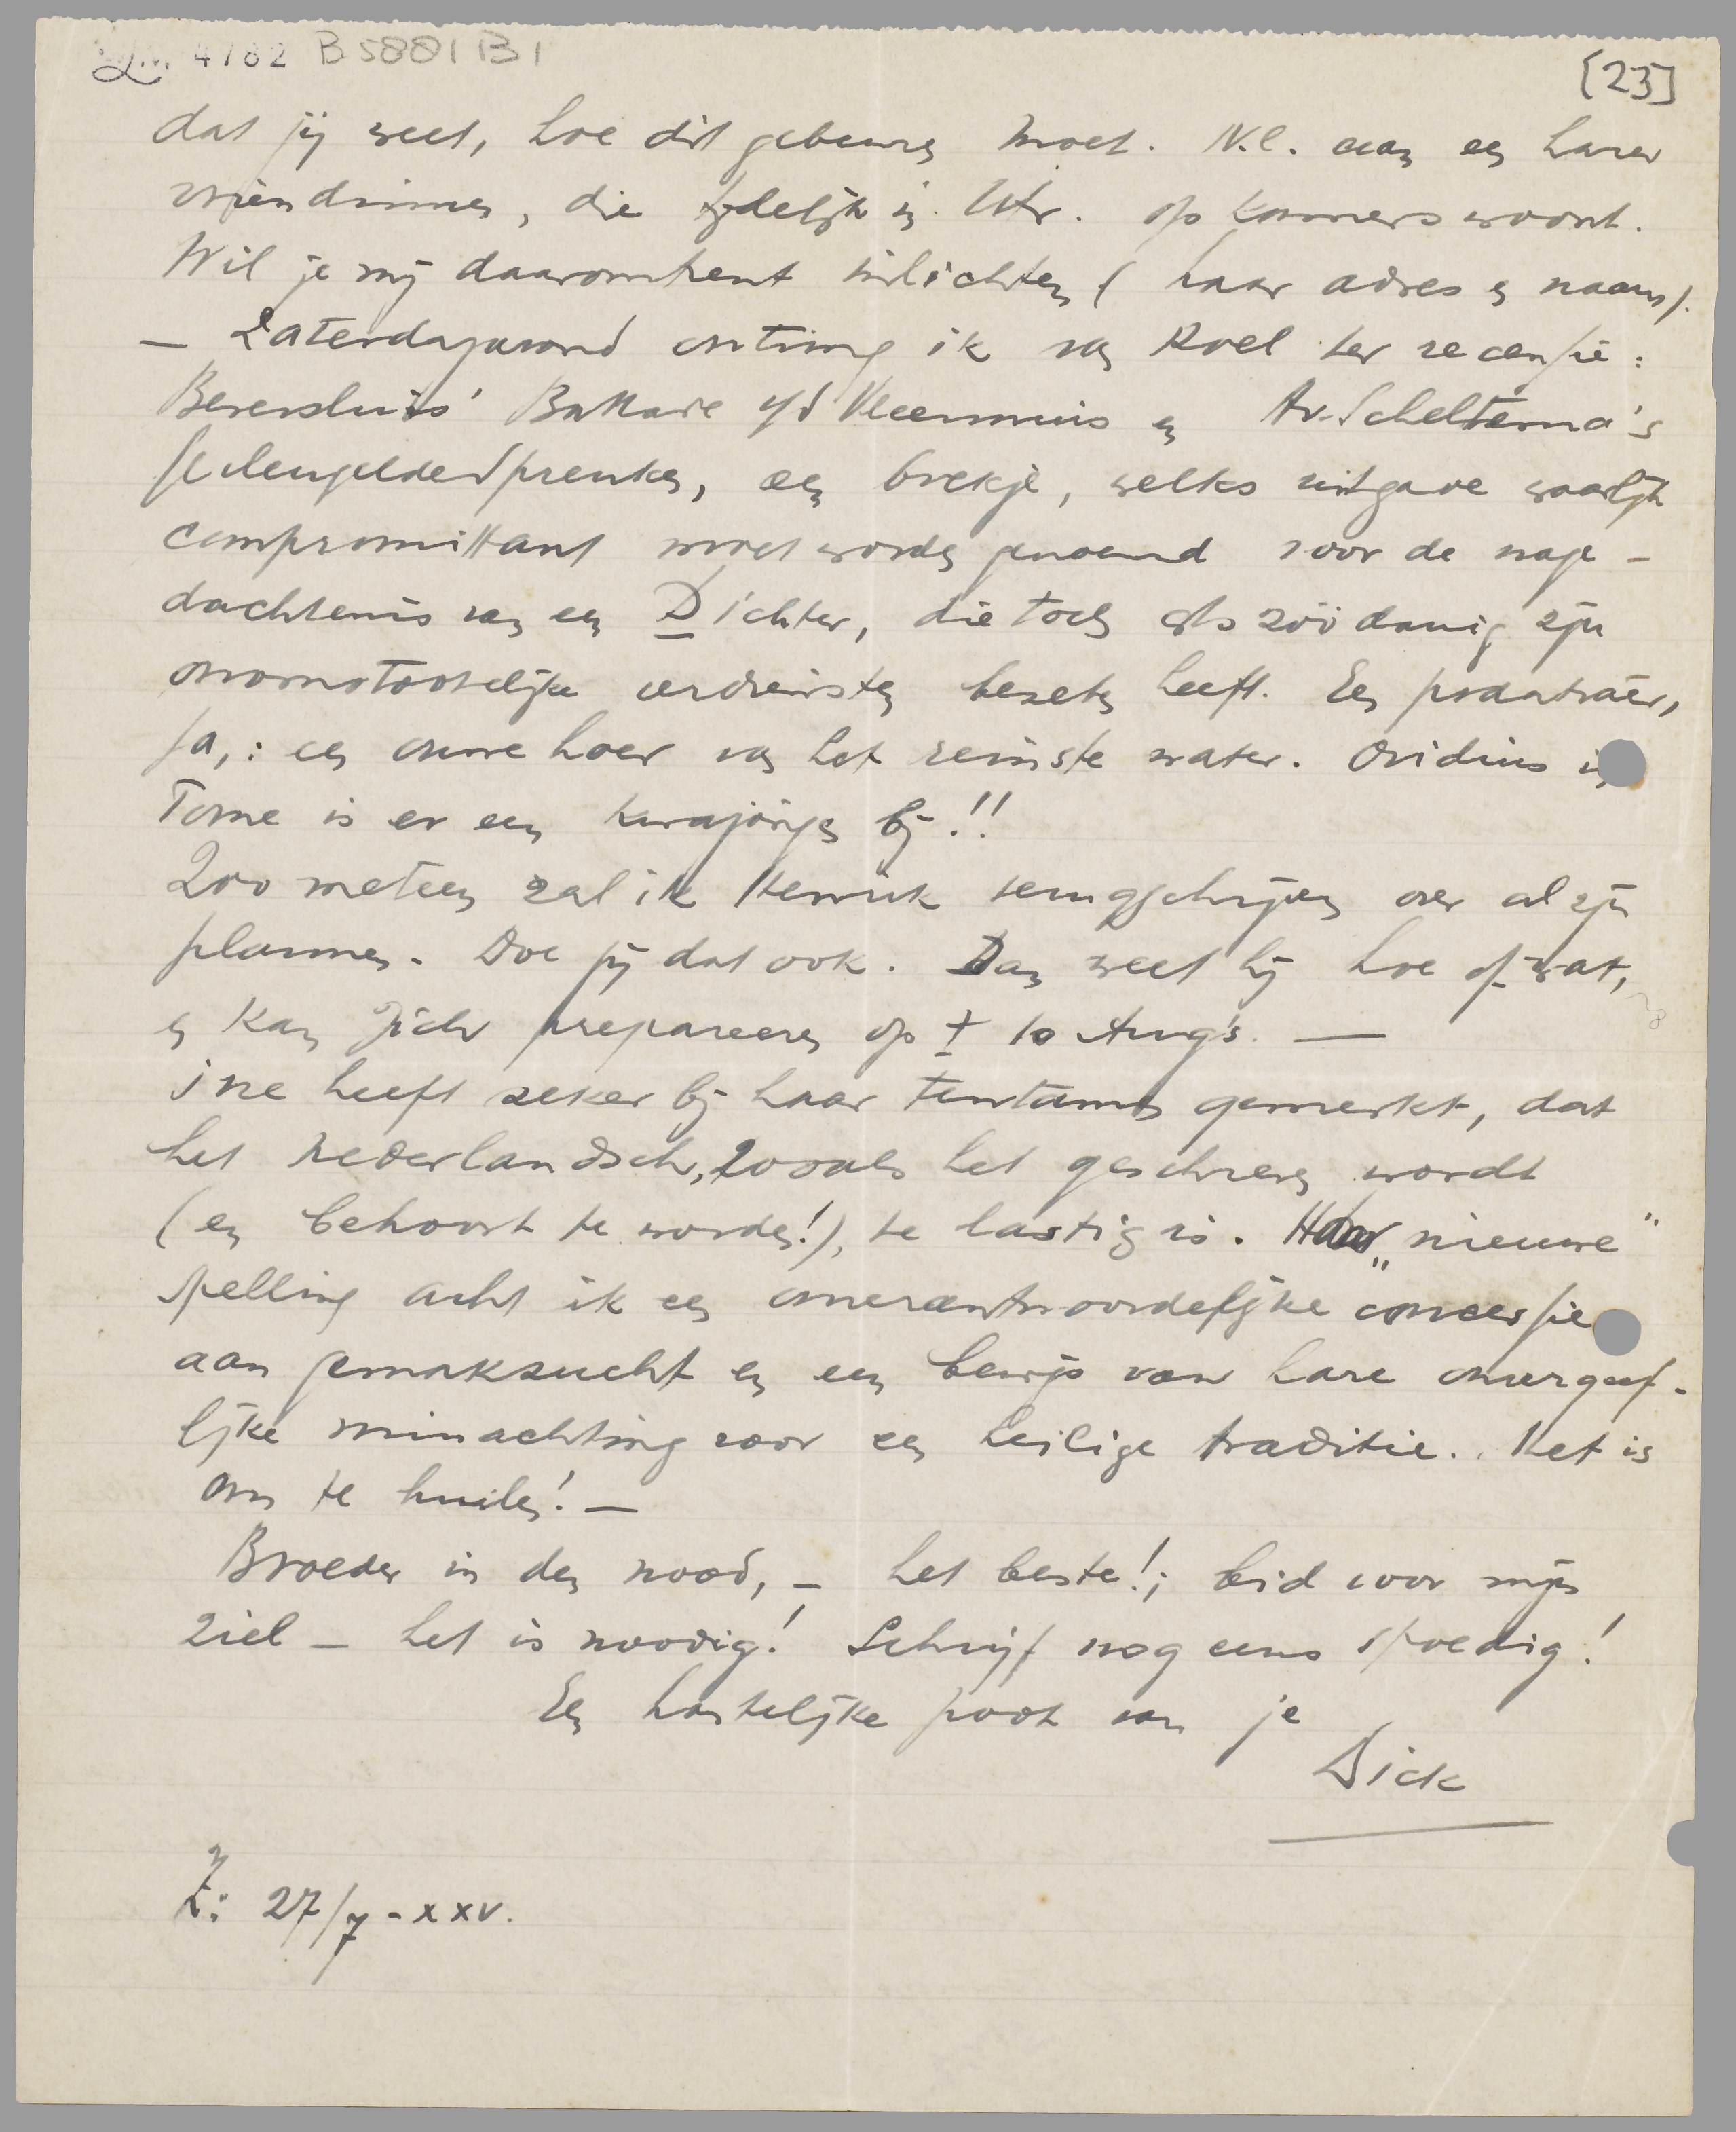 4782 B5881 B1
[23]
dat jij weet, hoe dit gebeuren moet. N.l. aan een harer
vriendinnen, die tydelijk in Utr. op kamers woont.
Wil je mij daaromtrent inlichten (haar adres en naam).
— Zaterdagavond ontving ik van Roel ter recensie:
Beversluis' Ballade v/d Vleermuis en Av. Scheltema's
prenten, een boekje, welks uitgave waarlijk
compromittant moet worden genoemd voor de nage-
dachtenis van een Dichter, die toch als zóódanig zijn
onomstootelijke verdiensten bezeten heeft. Een
ja,: een ouwehoer van het reinste water. Ovidius in
Tome is er een kwajongen bij!!
Zoo meteen zal ik Henrik terugschrijven over al zijn
plannen. Doe jij dat ook. Dan weet hij hoe of wat,
en kan zich prepareeren op ± 10 Aug's. —
Ine heeft zeker bij haar tentamen gemerkt, dat
het nederlandsch, zooals het geschreven wordt
(en behoort te worden!), te lastig is. Haar „nieuwe"
spelling acht ik een onverantwoordelijke concessie
aan gemakzucht en een bewijs van hare onvergeef-
lijke minachting voor een heilige traditie. Het is
om te huilen! —
Broeder in den nood, — het beste!; bid voor mijn
ziel — het is noodig! Schrijf nog eens spoedig!
Een hartelijke poot van je
Dick
Z: 27/7 - XXV.